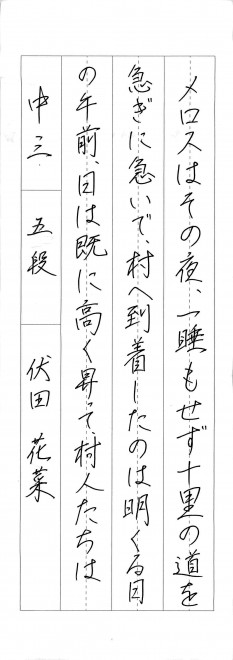 メロスはその夜、一睡もせず十里の道を
急ぎに急いで、村へ到着したのは明くる日
の午前、日は既に高く昇って、村人たちは
中三 五段 伏田 花菜